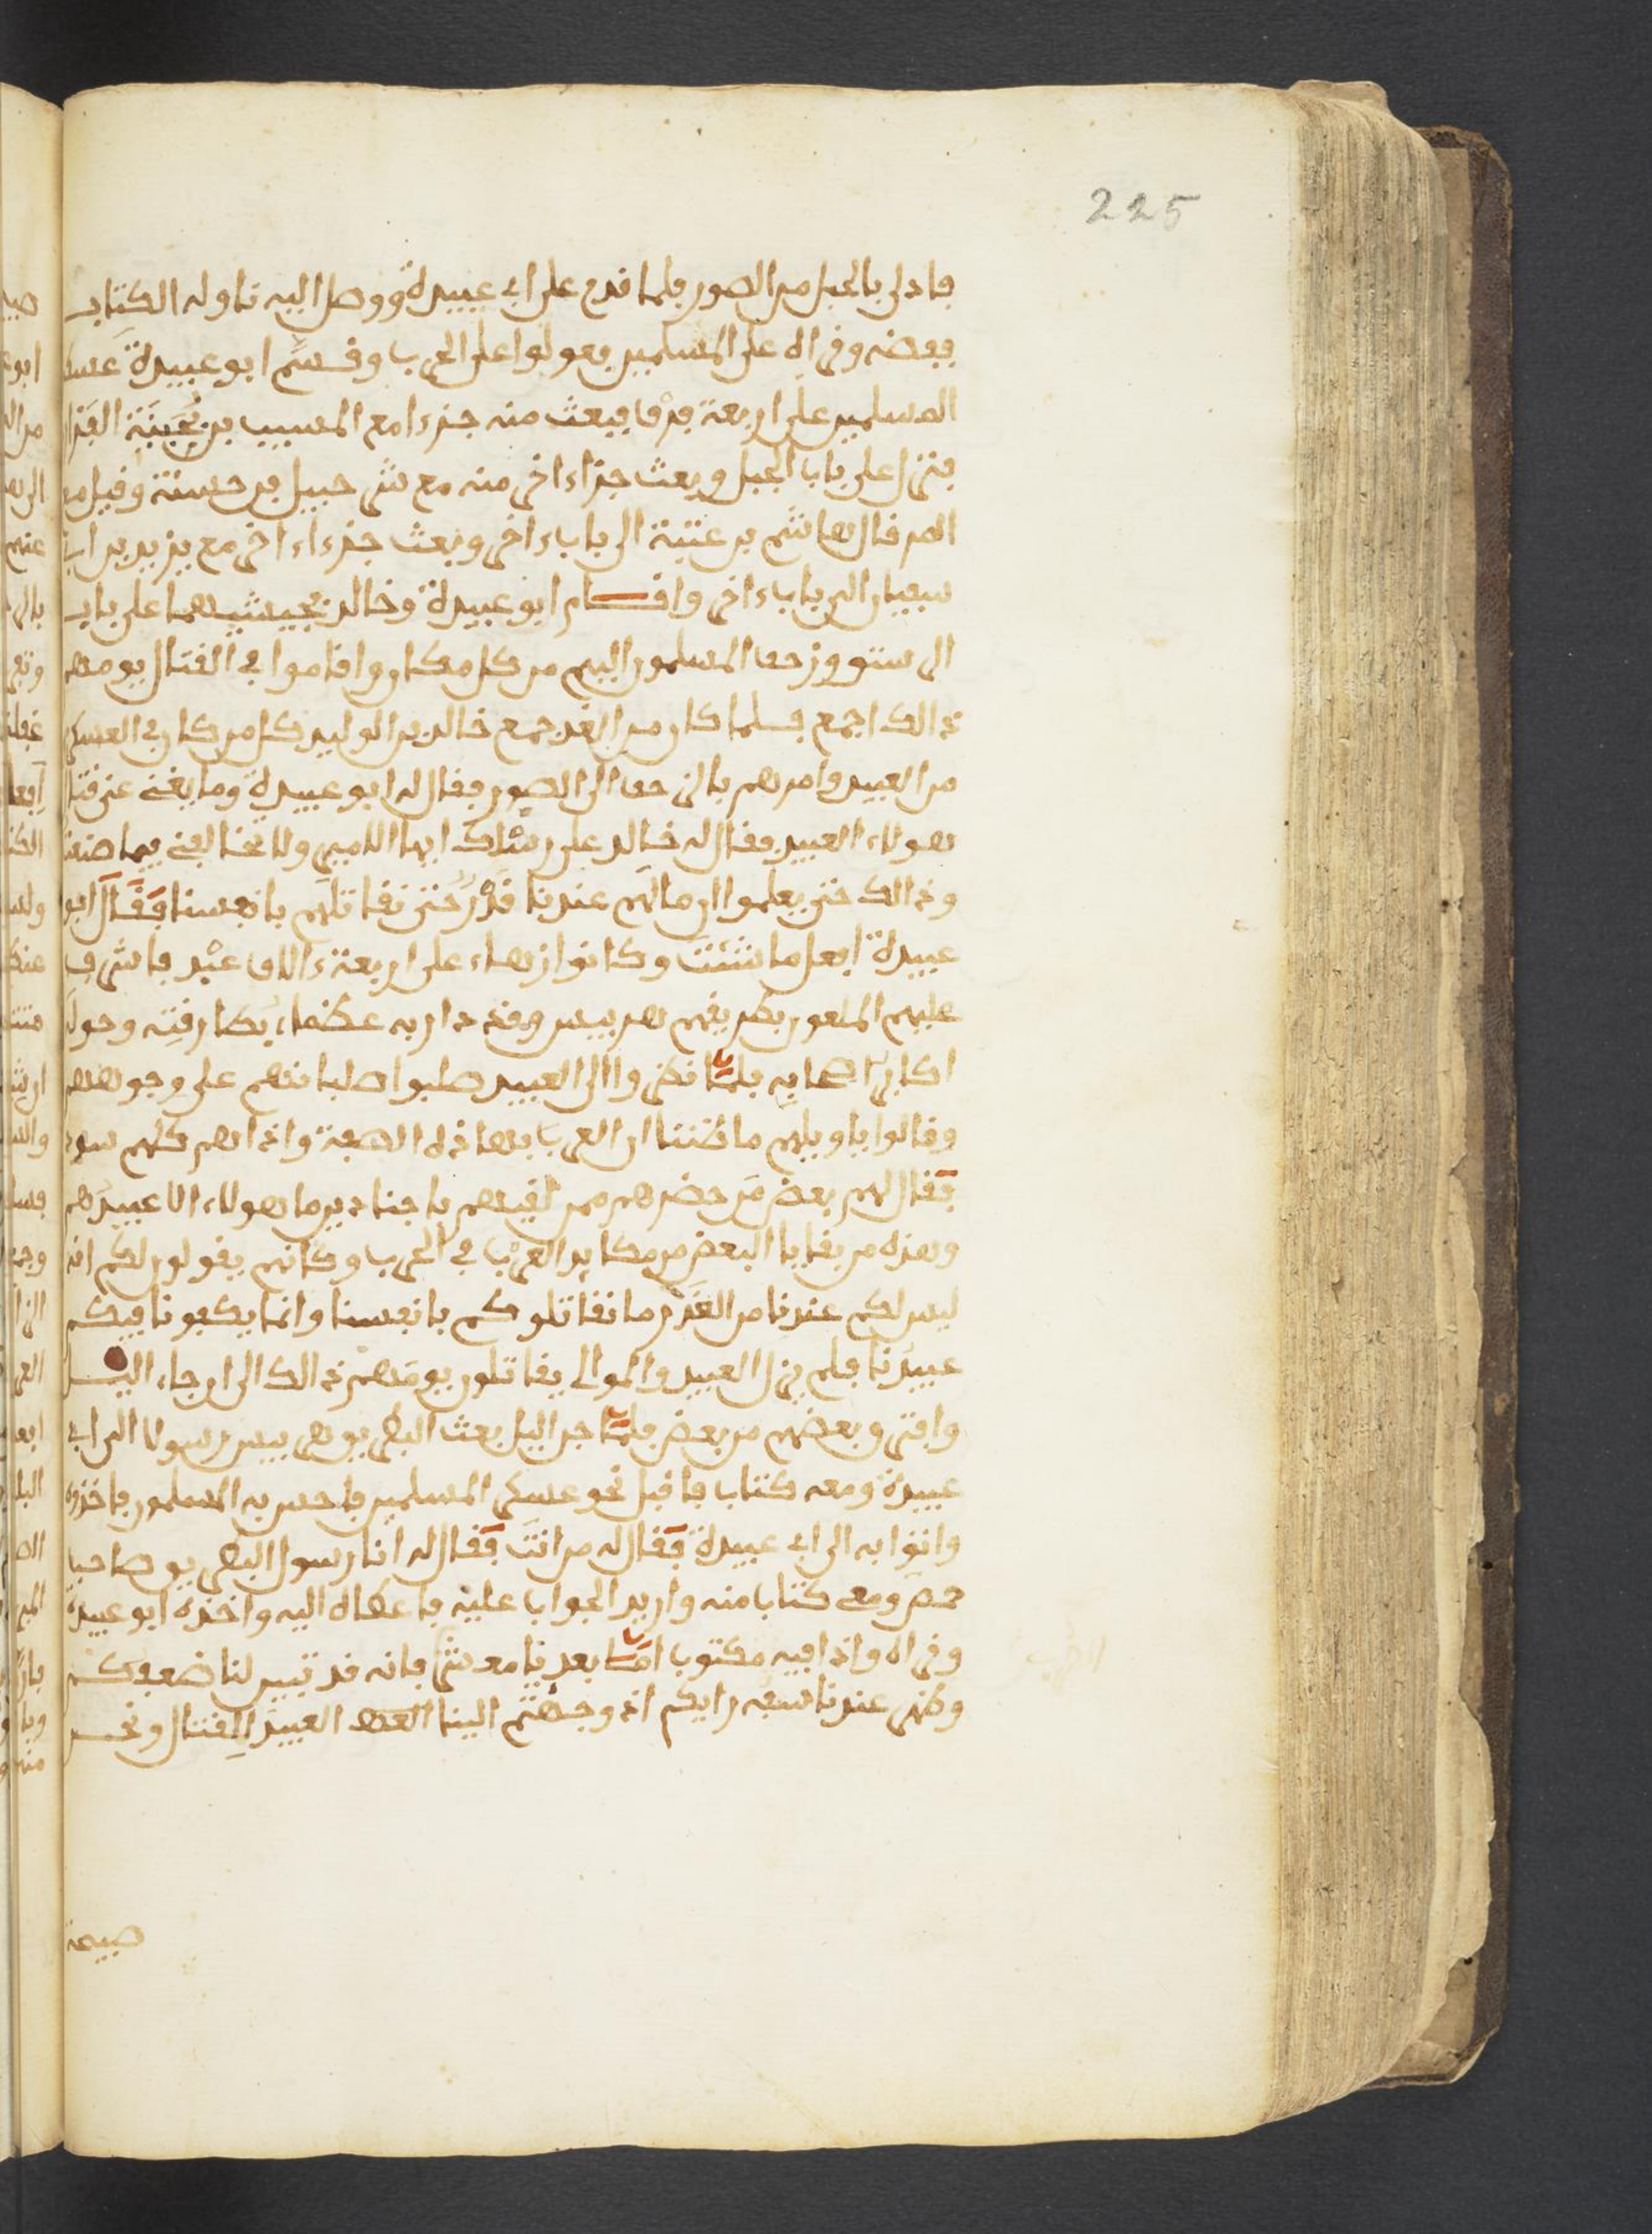 225
فادلى بالحبل من الصور فلما قدم على ابي عبيدة ووصل اليه ناوله الكتاب
ففضه وقراه على المسلمين فعولوا على الحرب وقسم ابو عبيدة عسكر
المسلمين على اربعة فرق فبعث منه جزءا مع المسيب بن نجيبة الفزار
فنزل على باب الجبل وبعث جزاء اخر منه مع شرحبيل بن حسنة وقيل مع
المرقال هاشم بن عتبة الى باب ءاخر وبعث جزءا ءاخر مع يزيد بن ابي
سفيان الى باب ءاخر واقام ابو عبيدة وخالد بجيشيهما على باب
الرستن وزحف المسلمون اليهم من كل مكان واقاموا في القتال يومهم
ذالك اجمع فلما كان من الغد جمع خالد بن الوليد كل من كان في العسكر
من العبيد وامرهم بالزحف الى الصور فقال له ابو عبيدة وما يغني عن قتا
هولاء العبيد فقال له خالد على رسلك ايها الامير ولا تخالفني فيما صنعت
وذالك حتى يعلموا ان مالهم عندنا قدر حتى نقاتلهم بانفسنا فقال ابو
عبيدة افعل ما شئت وكانوا زهاء على اربعة ءالاف عبد فاشرف
عليهم الملعون بطريقهم هربيس وقد دار به عظماء بطارقته وحوله
اكابر اصحابه فلما نظروا الى العبيد صلبوا صلبانهم على وجوههم
وقالوا يا ويلهم ما ظننا ان العرب بهاذه الصفة واذا هم كلهم سود
فقال لهم بعض من حضرهم ممن لقيهم باجنادين ما هولاء الا عبيدهم
وهذه من بقايا البعض من مكايد العرب في الحرب وكانهم يقولون لكم انه
ليس لكم عندنا من القدر ما نقاتلوكم بانفسنا وانما يكفونا فيكم
عبيدنا فلم يزل العبيد والموالي يقاتلون يومهم ذالك الى ان جاء اليل
وافترق بعضهم من بعض فلما جن اليل بعث البطريق هربيس رسولا الى ابي
عبيدة ومعه كتاب فاقبل نحو عسكر المسلمين فاحس به المسلمون فاخذوه
واتوا به الى ابي عبيدة فقال له من انت فقال له انا رسول البطريق صاحب
حمص ومعي كتاب منه واريد الجواب عليه فاعطاه اليه واخذه ابو عبيدة
وقراه واذا فيه مكتوب اما بعد يا معشر فانه قد تبين لنا ضعفكم
وظهر عندنا سفه رايكم اذ وجهتم الينا العبيد للقتال ونحن
صبيحة